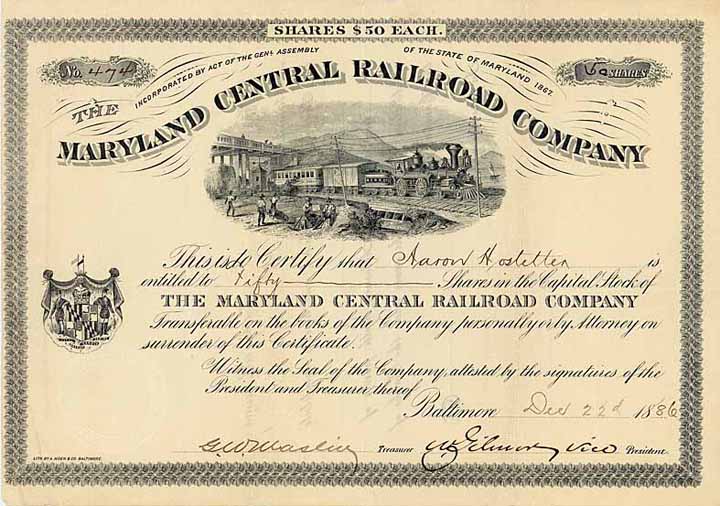 SHARES $50 EACH.
No. 474
INCORPORATED BY ACT OF THE GENL ASSEMBLY OF THE STATE OF MARYLAND 1867.
50 SHARES
THE
MARYLAND CENTRAL RAILROAD COMPANY
This is to Certify that Aaron Hostetter is
entitled to Fifty Shares in the Capital Stock of
THE MARYLAND CENTRAL RAILROAD COMPANY
Transferable on the books of the Company personally or by Attorney on
surrender of this Certificate.
Witness the Seal of the Company, attested by the signatures of the
President and Treasurer thereof
Baltimore Dec 22d 1886
G.W. Maslin Treasurer Gilmor Vice President.
LITH. BY A. HOEN & CO. BALTIMORE.